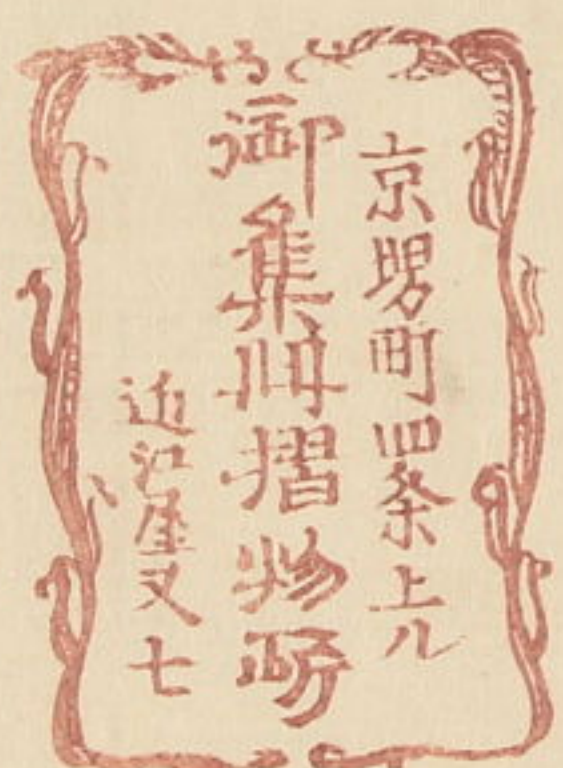 京堺町四条上ル
御集冊摺物所
近江屋又七